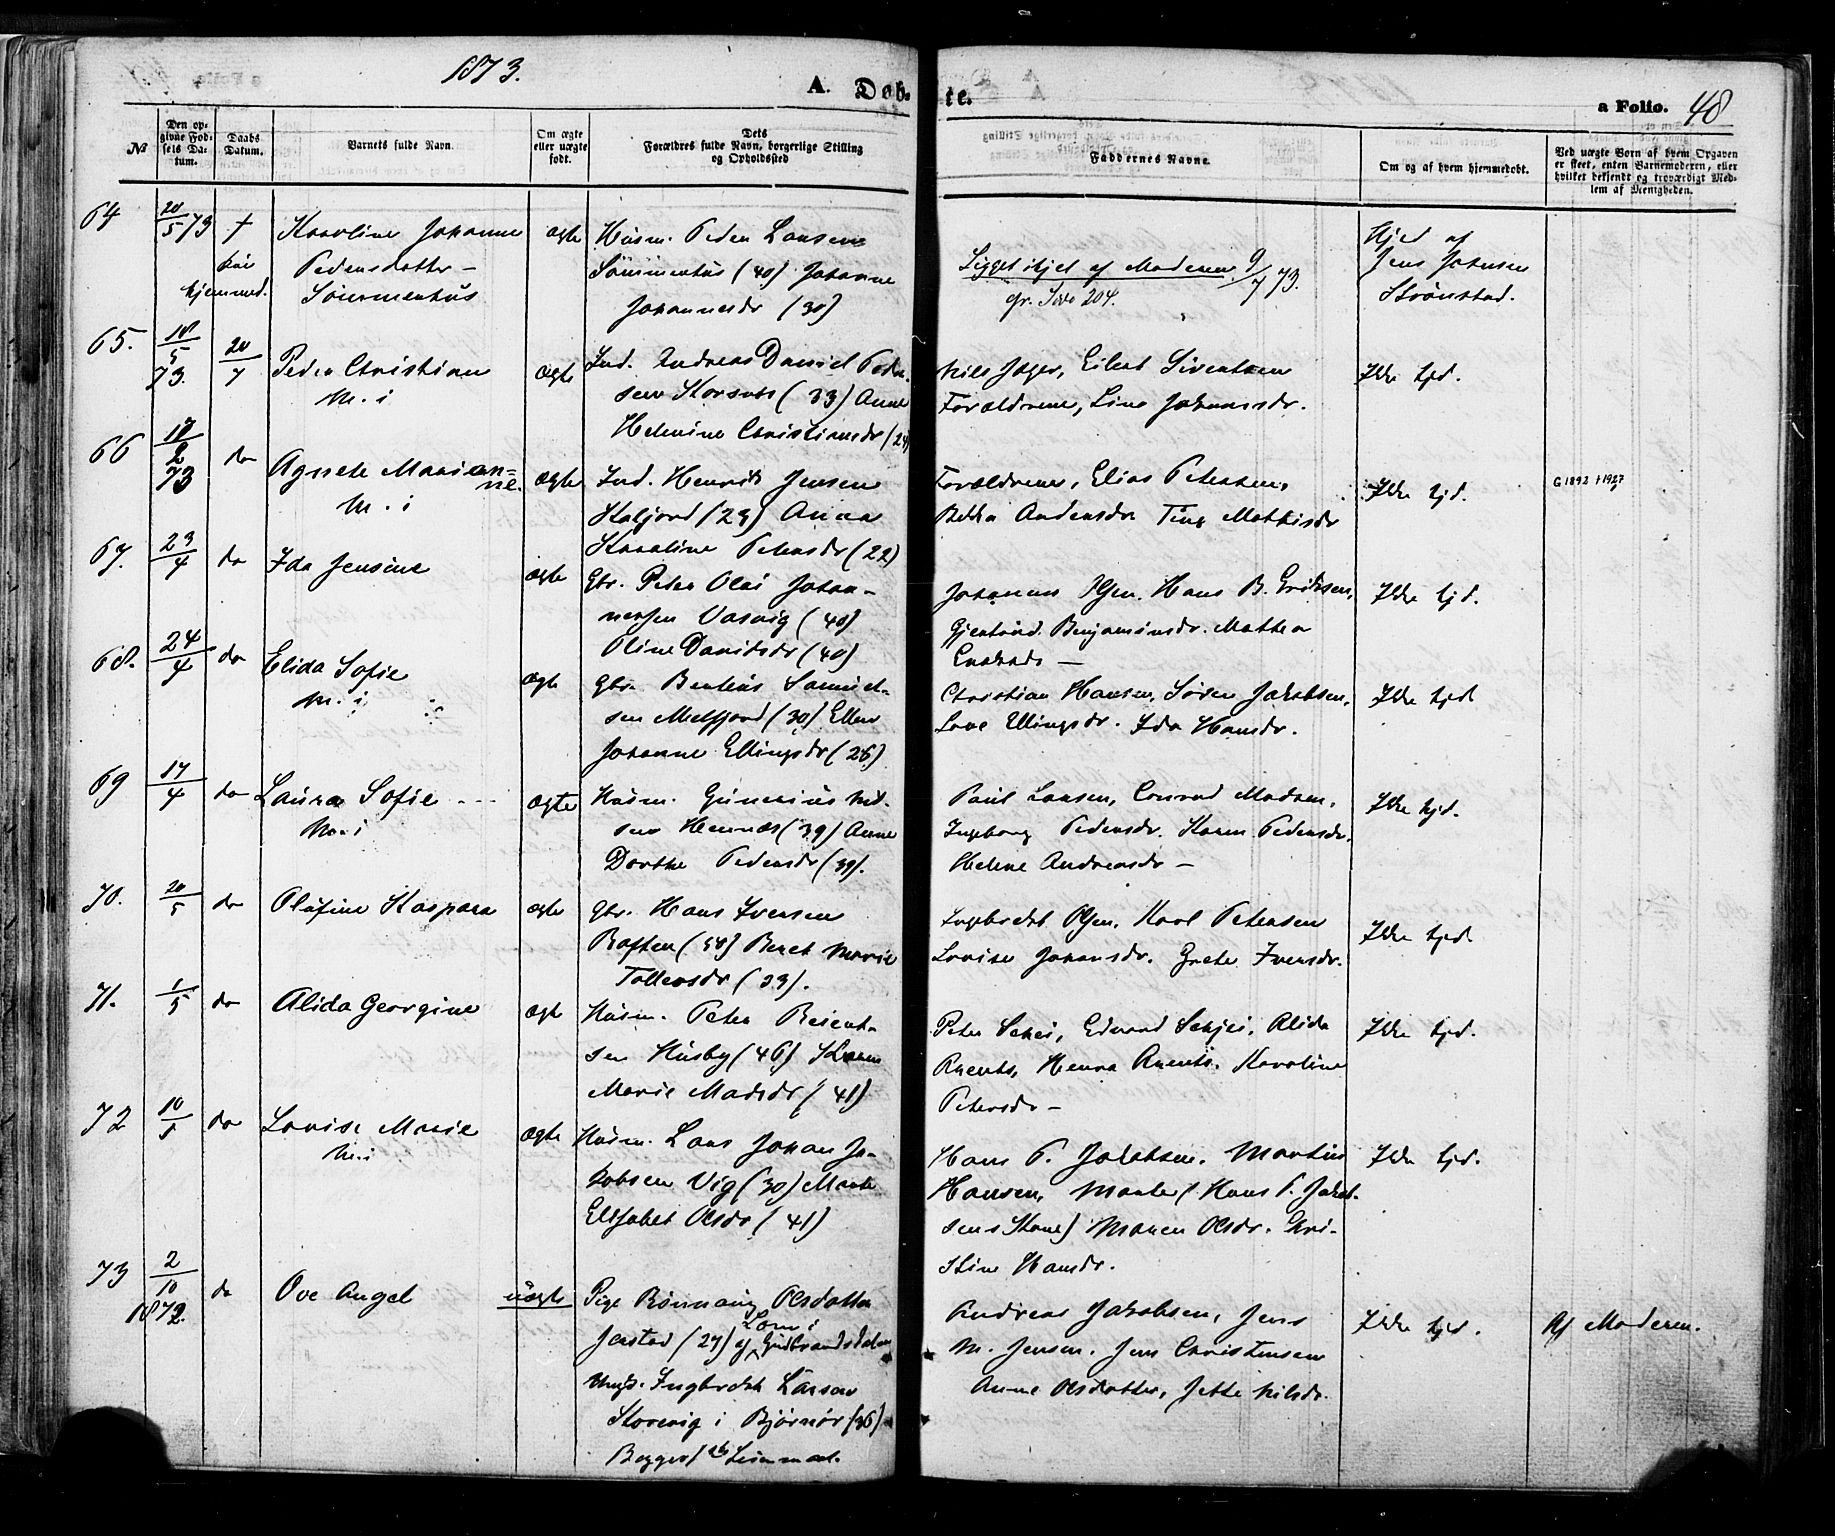 1873.
A. Døb-
te.
a Folio. 48
№
Den op-
givne Fød-
sels Da-
tum.
Daabs
Datum.
Barnets fulde Navn.
Om ægte
eller uægte
født.
Dets
Forældres fulde Navn, borgerlige Stilling
og Opholdssted
Faddernes Navne.
Om og af hvem hjemmedøbt.
Ved uægte Børn af hvem Opgaven
er skeet, enten Barnemoderen, eller
hvilket bekjendt og troværdigt Med-
lem af Menigheden.
64
20/5 73
†
hjemmed.
Karoline Johanne
Pedersdatter –
ægte
Husm. Peder Larsen
(40) Johanne
Johannesdr (30)
Ligget ihjel af Moderen 9/7 73.
cfr. Side 204.
Hjed. af
Jens Johnsen
Strønstad.
65.
18/5
73.
20/7
Peder Christian
M. i
ægte
Ind. Andreas Daniel Peder-
sen (33) Anne
Christiansdr (24)
Nils Jæger, Eilert Sivertsen
Forældrene, Lina Johansdr.
Ikke hjd.
66
18/2
73
do
Agnete Marian-
ne.
M. i
ægte
Ind. Henrik Jensen
Kaljord (29) Anna
Karoline Petersdr (22)
Forældrene, Elias Petersen,
Andersdr Mathisdr
Ikke hjd.
G 1892 † 1927
67.
23/4
do
Ida Jensine
ægte
Gbr. Peter Olai Johan-
nessen Vasvig (40)
Oline Davidsdr (40)
Johannes Olsen. Hans B. Eriksen,
Benjaminsdr. Mathea
Ikke hjd.
68.
24/4
do
Elida Sofie
M. i
ægte
Gbr. Benteus Samuel-
sen Melfjord (30) Ellen
Johanne Ellingsdr (26)
Christian Hansen, Søren Jakobsen,
Ellingsdr. Ida Hansdr.
Ikke hjd
69
17/4
do
Laura Sofie
M. i
ægte
Husm. Gunerius Nil-
sen Hennæs (39) Anne
Dorthe Pedersdr (39).
Paul Larsen, Conrad Madsen,
Ingeborg Pedersdr. Karen Pedersdr.
Helene Andreasdr –
Ikke hjd.
70.
20/5
do
Olufine Kaspara
ægte
Gbr. Hans Iversen
Roften (58) Beret Marie
Tollevsdr (39).
Ingebrekt Olsen. Karl Petersen
Lovise Johansdr. Grete Iversdr.
Ikke hjd
71.
1/5
do
Alida Georgine
ægte
Husm. Peter Beient-
sen Husby (46) Karen
Marie Madsdr (41)
Peter Schei, Edvard Schjei, Alida
Arents, Arents. Karoline
Petersdr –
Ikke hjd.
72
10/5
do
Lovise Marie
M. i
ægte
Husm. Lars Johan Ja-
kobsen Vig (30) Marte
Elisabet Olsdr (41)
Hans P. Jakobsen. Martin
Hansen, (Hans P. Jakob-
sens Kone) Maren Olsdr. Chri-
stine Hansdr.
Ikke hjd.
73
2/10
1872.
do
Ove Angel
uægte
Pige Rønnaug Olsdatter
(27) af Lom i Gudbrandsdalen
Ungk. Ingbrekt Larsen
i Bjørnør (36)
Begges 1ste Leiermaal.
Andreas Jakobsen, Jens
M. Jensen. Jens Christensen
Anne Olsdatter, Jette Nilsdr.
Ikke hjd.
Af Moderen.